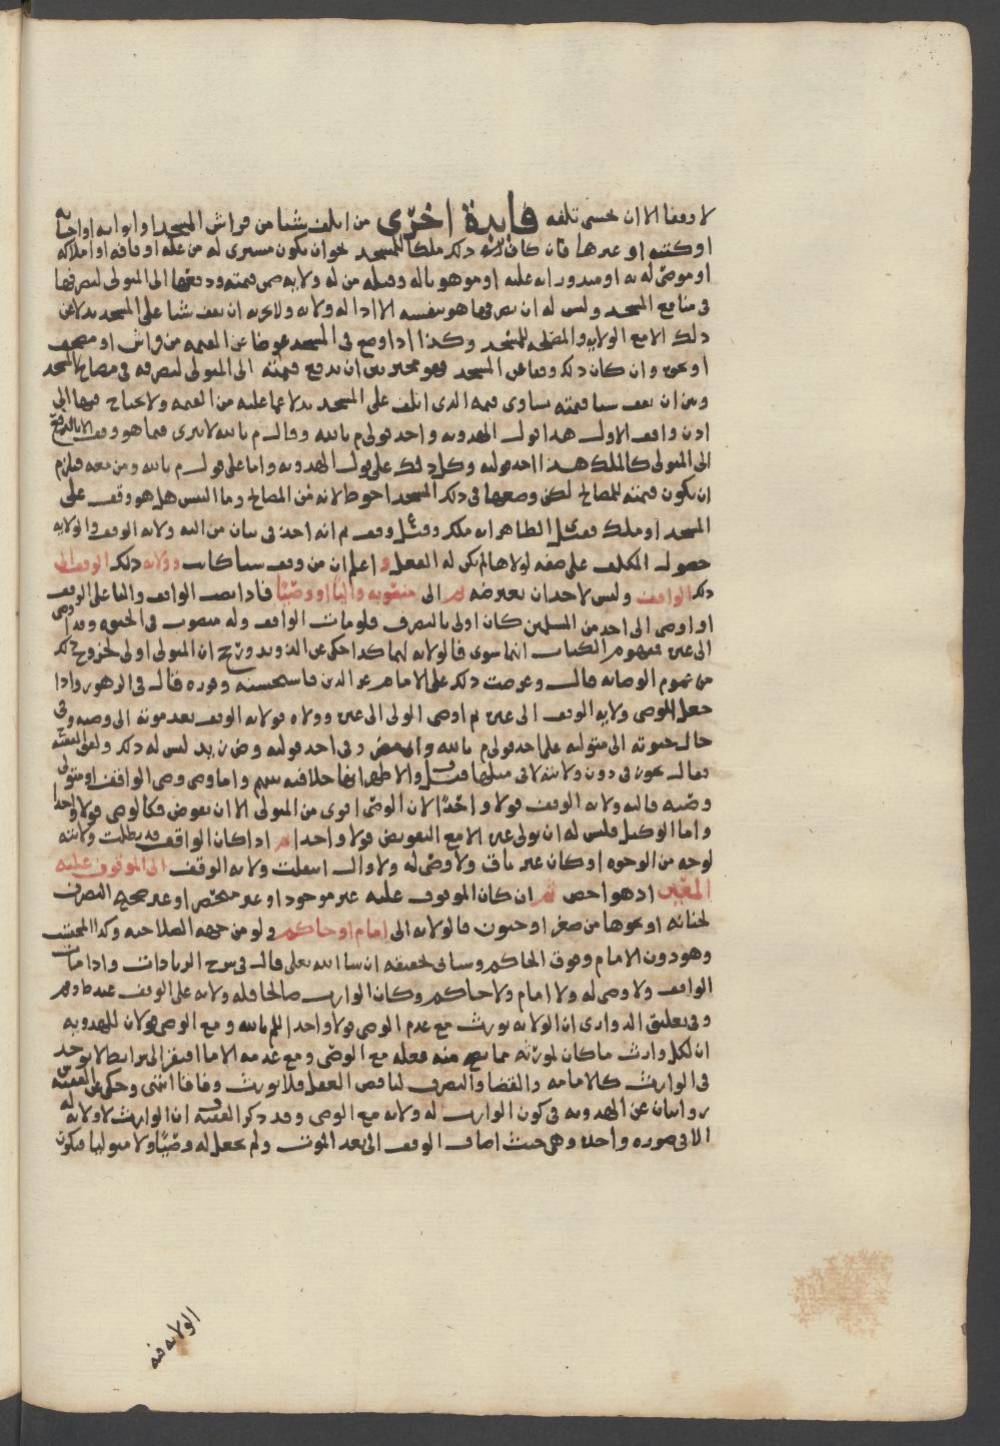 لا وقفا الا ان يخشى تلفه فايدة اخرى من اتلف شيا من فراش المسجد او ابوابه او اخشابه
او كتبه او غيرها فان كان ذلك ملكا للمسجد نحو ان يكون مشترى له من غلة اوقافه او املاكه
او موصى له به او منذور به عليه او موهوبا له وقبله من له ولاية ضمن قيمته ودفعها الى المتولي ليصرفها
في منافع المسجد وليس له ان يصرفها هو بنفسه الا اذا له ولاية ولا يجزيه ان يقف شيا على المسجد بدلا عن
ذلك الا مع الولاية والمصلحة للمسجد وكذا اذا وضع في المسجد عوضا عن القيمة من فراش او مصحف
او نحوه وان كان ذلك وقفا على المسجد فهو مخير بين ان يدفع قيمته الى المتولي ليصرفه في مصالح المسجد
وبين ان يقف شيا قيمته يساوي قيمة الذي اتلف على المسجد بدلا عما عليه من القيمة ولا يحتاج فيها الى
اذن واقف الاول هذا قول الهدوية واحد قولي م بالله وقال م بالله لا يبرى فيما هو وقف الا بالدفع
الى المتولي كالملك هذا احد قوليه وكل ذلك على قول الهدوية واما على قول م بالله ومن معه فيلزم
ان يكون قيمته للمصالح لكن وضعها في ذلك المسجد احوط لانه من المصالح وما التبس هل هو وقف على
المسجد او ملك فقيل الظاهر انه ملك وقيل وقف ثم انه اخذ في بيان من اليه ولاية الوقف والولاية
حصول المكلف على صفة لولاها لم يكن له الفعل و اعلم ان من وقف شيا كانت ولاية ذلك الوقف الى
ذلك الواقف وليس لاحد ان يعترضه ثم الى منصوبه واليا او وصيا فاذا نصب الواقف واليا على الوقف
او اوصى الى احد من المسلمين كان اولى بالتصرف فلو مات الواقف وله منصوب في الحيوة وقد اوصى
الى غيره فمفهوم الكتاب انهما سوى فالولاية لهما كذا حكي عن الدوّيد ورجح ان المتولي اولى لخروج ذلك
من عموم الوصاية قال وعرضت ذلك على الامام عز الدين فاستحسنه وقرره قال في الزهور واذا
جعل الموصي ولاية الوقف الى غيره ثم اوصى الولي الى غيره وولاه فولاية الوقف بعد موته الى وصيه وفي
حال حيوته الى متوليه على احد قولي م بالله وفي احد قوليه وض زيد ليس له ذلك
فقال يجوز في دون ولايته لا في مثلها قيل والاظهر انها خلافية بينهم واما وصي وصي الواقف او متولي
وصيه فاليه ولاية الوقف قولا واحدا لان الوصي اقوى من المتولي الا ان يفوض فكالوصي قولا واحدا
واما الوكيل فليس له ان يولي غيره الا مع التفويض قولا واحدا ثم اذا كان الواقف قد بطلت ولايته
لوجه من الوجوه او كان غير باق ولا وصي له ولا وال انتقلت ولاية الوقف الى الموقوف عليه
المعين اذ هو اخص ثم ان كان الموقوف عليه غير موجود او غير منحصر او غير صحيح التصرف
لخيانة او نحوها من صغر او جنون فالولاية الى امام او حاكم ولو من جهة الصلاحية وكذا المحتسب
وهو دون الامام وفوق الحاكم وسياتي تحقيقه ان شا الله تعالى قال في شرح الزيادات واذا مات
الواقف ولا وصي له ولا امام ولا حاكم وكان الوارث صالحا فله ولاية على الوقف عند ط وم
وفي تعليق الدواري ان الولاية تورث مع عدم الوصي قولا واحدا للم بالله ومع الوصي قولان للهدوية
ان لكل وارث ما كان لمورثه مما يصح منه فعله مع الوصي ومع عدمه الا ما افتقر الى شرايط لا توجد
في الوارث كالامامة والقضا والتصرف لناقص العقل فلا يورث وفاقا انتهى وحكى عن الفقيه
روايتان عن الهدوية في كون الوارث له ولاية مع الوصي وقد ذكر الفقيه ف ان الوارث لا ولاية له
الا في صورة واحدة وهي حيث اضاف الوقف الى بعد الموت ولم يجعل له وصيا ولا متوليا فتكون
الولاية فيه